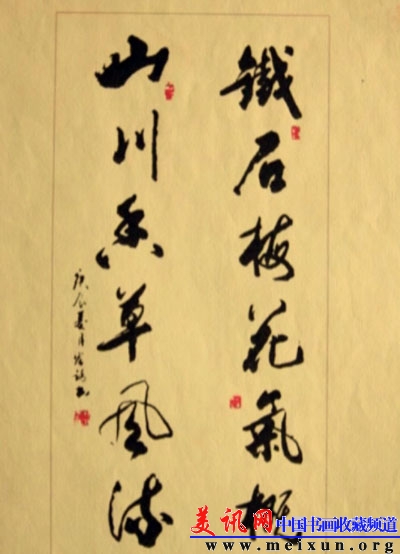 鐵石梅花氣概
山川香草風流
美讯网 中国书画收藏频道
www.meixun.org